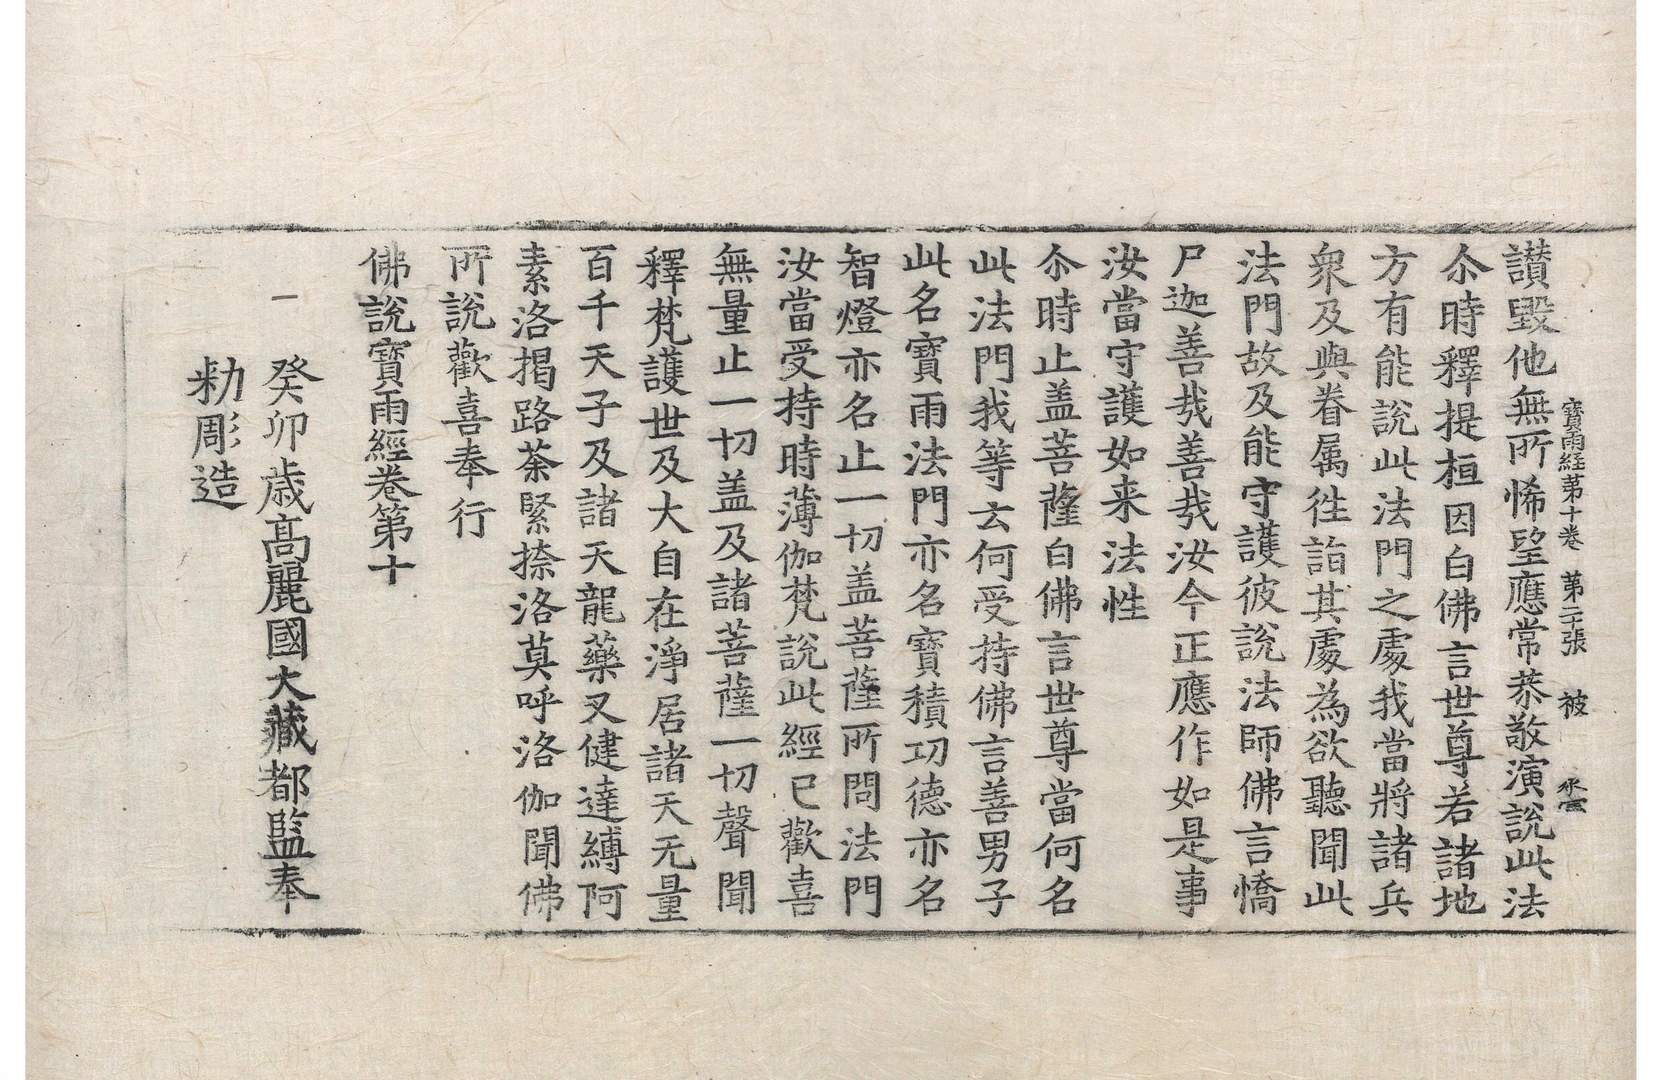 寶雨経第十卷 第二十張 被
讃毀他無所悕望應常恭敬演說此法
尒時釋提桓因白佛言世尊若諸地
方有能說此法門之處我當將諸兵
衆及與眷属徃詣其處為欲聽聞此
法門故及能守護彼說法師佛言憍
尸迦善㢤善㢤汝今正應作如是事
汝當守護如来法性
尒時止盖菩薩白佛言世尊當何名
此法門我等云何受持佛言善男子
此名寶雨法門亦名寶積功德亦名
智燈亦名止一切盖菩薩所問法門
汝當受持時薄伽梵說此經已歡喜
無量止一切盖及諸菩薩一切聲聞
釋梵護世及大自在淨居諸天无量
百千天子及諸天龍藥叉健達縛阿
素洛揭路荼緊捺洛莫呼洛伽聞佛
所說歡喜奉行
佛說寶雨經卷第十
癸卯歲高麗國大藏都監奉
勑彫造